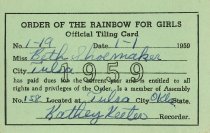 ORDER OF THE RAINBOW FOR GIRLS
Official Tiling Card
No. 1-19 Date 1-1 1959
Miss Beth Shoemaker
City Tulsa 1959
having paid dues for the current year and is entitled to all
rights and privileges of the Order. Is a member of Assembly
No. 158 Located at Tulsa Okla State
Kathey Keeter Recorder.